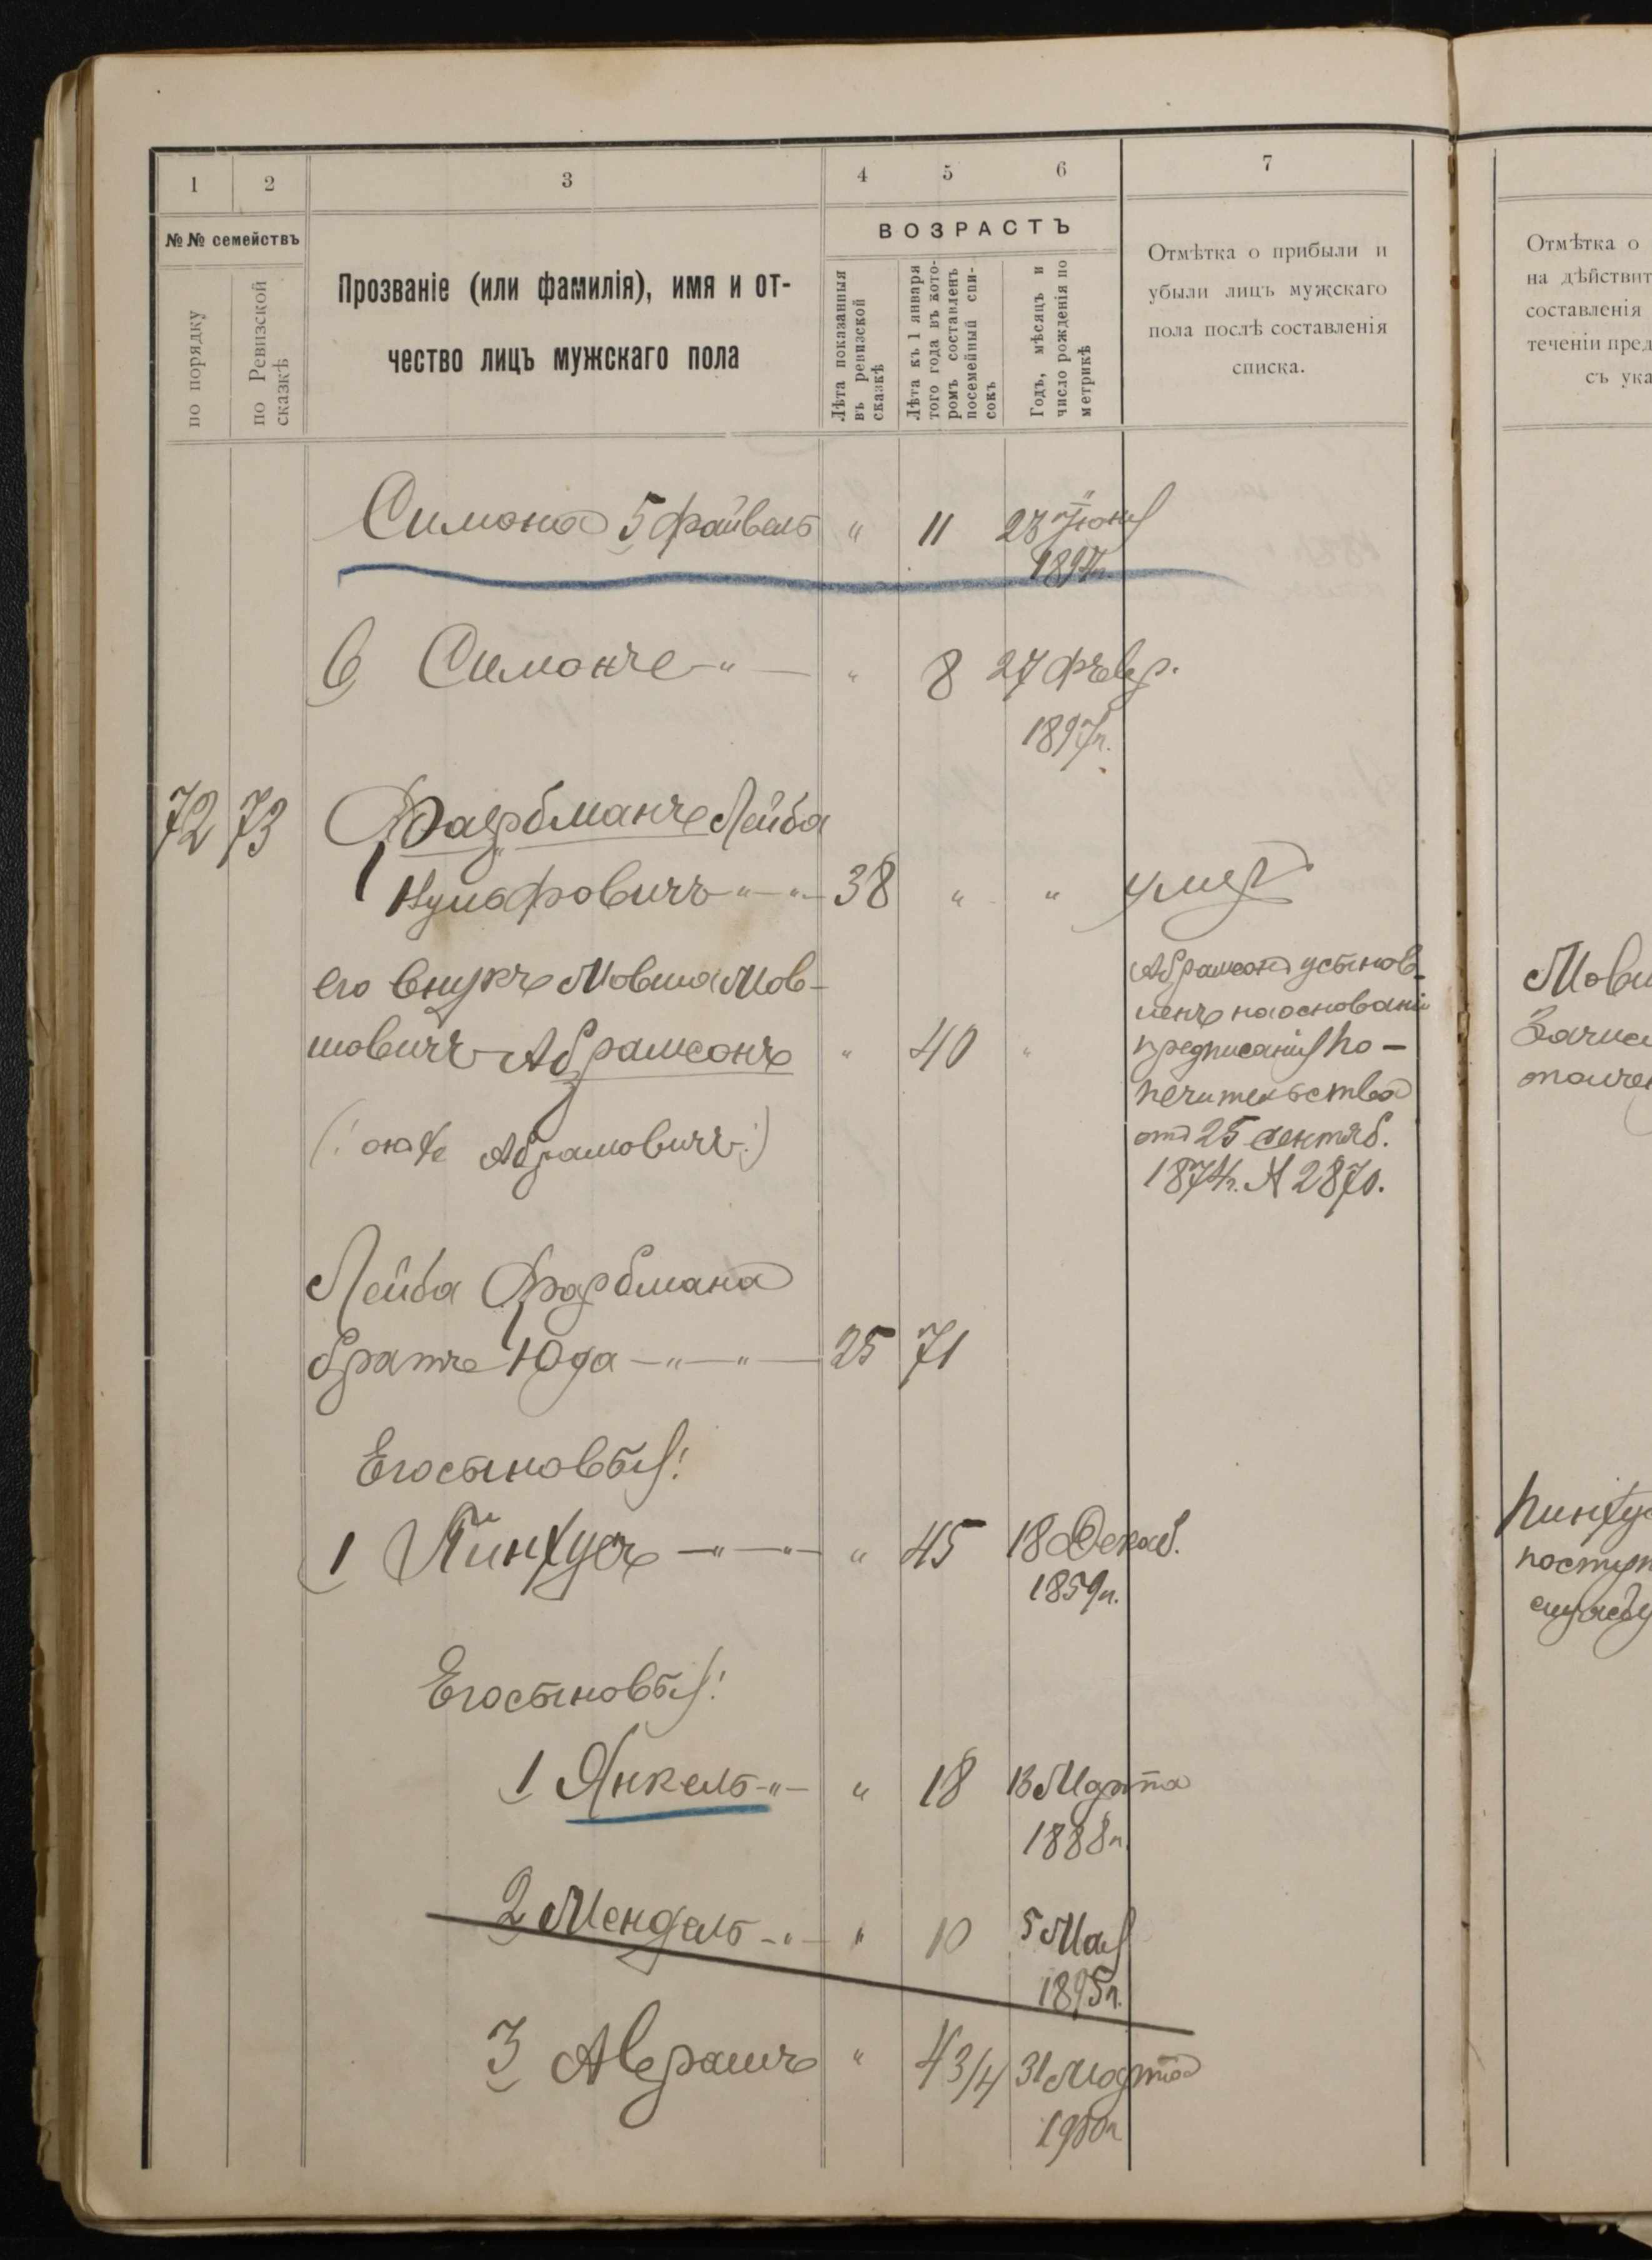 1 2 3 4 5 6 7
№№ семействъ
по порядку
по Ревизской сказкѣ
Прозваніе (или фамилія), имя и от-
чество лицъ мужскаго пола
ВОЗРАСТЪ
Лѣта показанныя
въ ревизской
сказкѣ
Лѣта къ 1 января
того года въ кото-
ромъ составленъ
посемейный спи-
сокъ
Годъ, мѣсяцъ и
число рожденія по
метрикѣ
Отмѣтка о прибыли и
убыли лицъ мужскаго
пола послѣ составленія
списка.
Отмѣтка о
на дѣйствит
составленія
теченіи пред
съ ука
Симона 5 Файвель " 11 23 Іюня
1894г.
6 Симонъ " — " 8 27 Февр.
1897г.
72 73 Фарбманъ Лейба
Нусаховичъ " — " 38 " " умеръ
его внукъ Мовша Мов-
шовичъ Абрамсонъ " 40 "
(: онъ же Абрамовичъ :)
Абрамсонъ усынов-
ленъ на основаніи
предписанія По-
печительства
отъ 25 сентяб.
1874г. № 2870.
Мовш
Зачис
Лейба Фарбмана
братъ Юда — " — " — 25 71
Его сыновья:
1 Пинхусъ — " — " — " 45 18 Декаб.
1859г.
Пинхус
поступ
службу
Его сыновья:
1 Янкель - " - " 18 13 Марта
1888г.
2 Мендель - " - " 10 5 Мая
1895г.
3 Аврамъ " 4 3/4 31 Марта
1900г